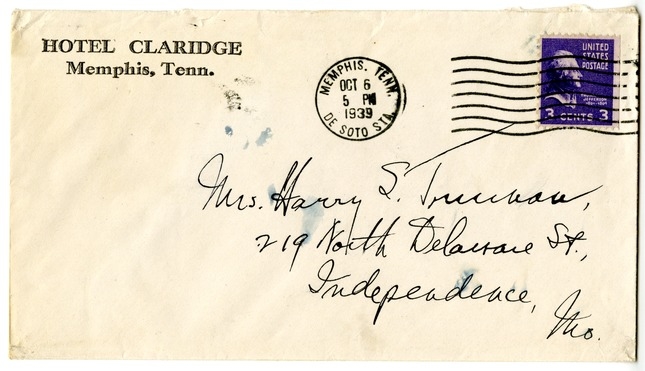 HOTEL CLARIDGE
Memphis, Tenn.
MEMPHIS. TENN.
OCT 6
5 PM
1939
DE SOTO STA.
UNITED
STATES
POSTAGE
JEFFERSON
3 CENTS 3
Mrs. Harry S. Truman,
219 North Delaware St.,
Independence,
Mo.